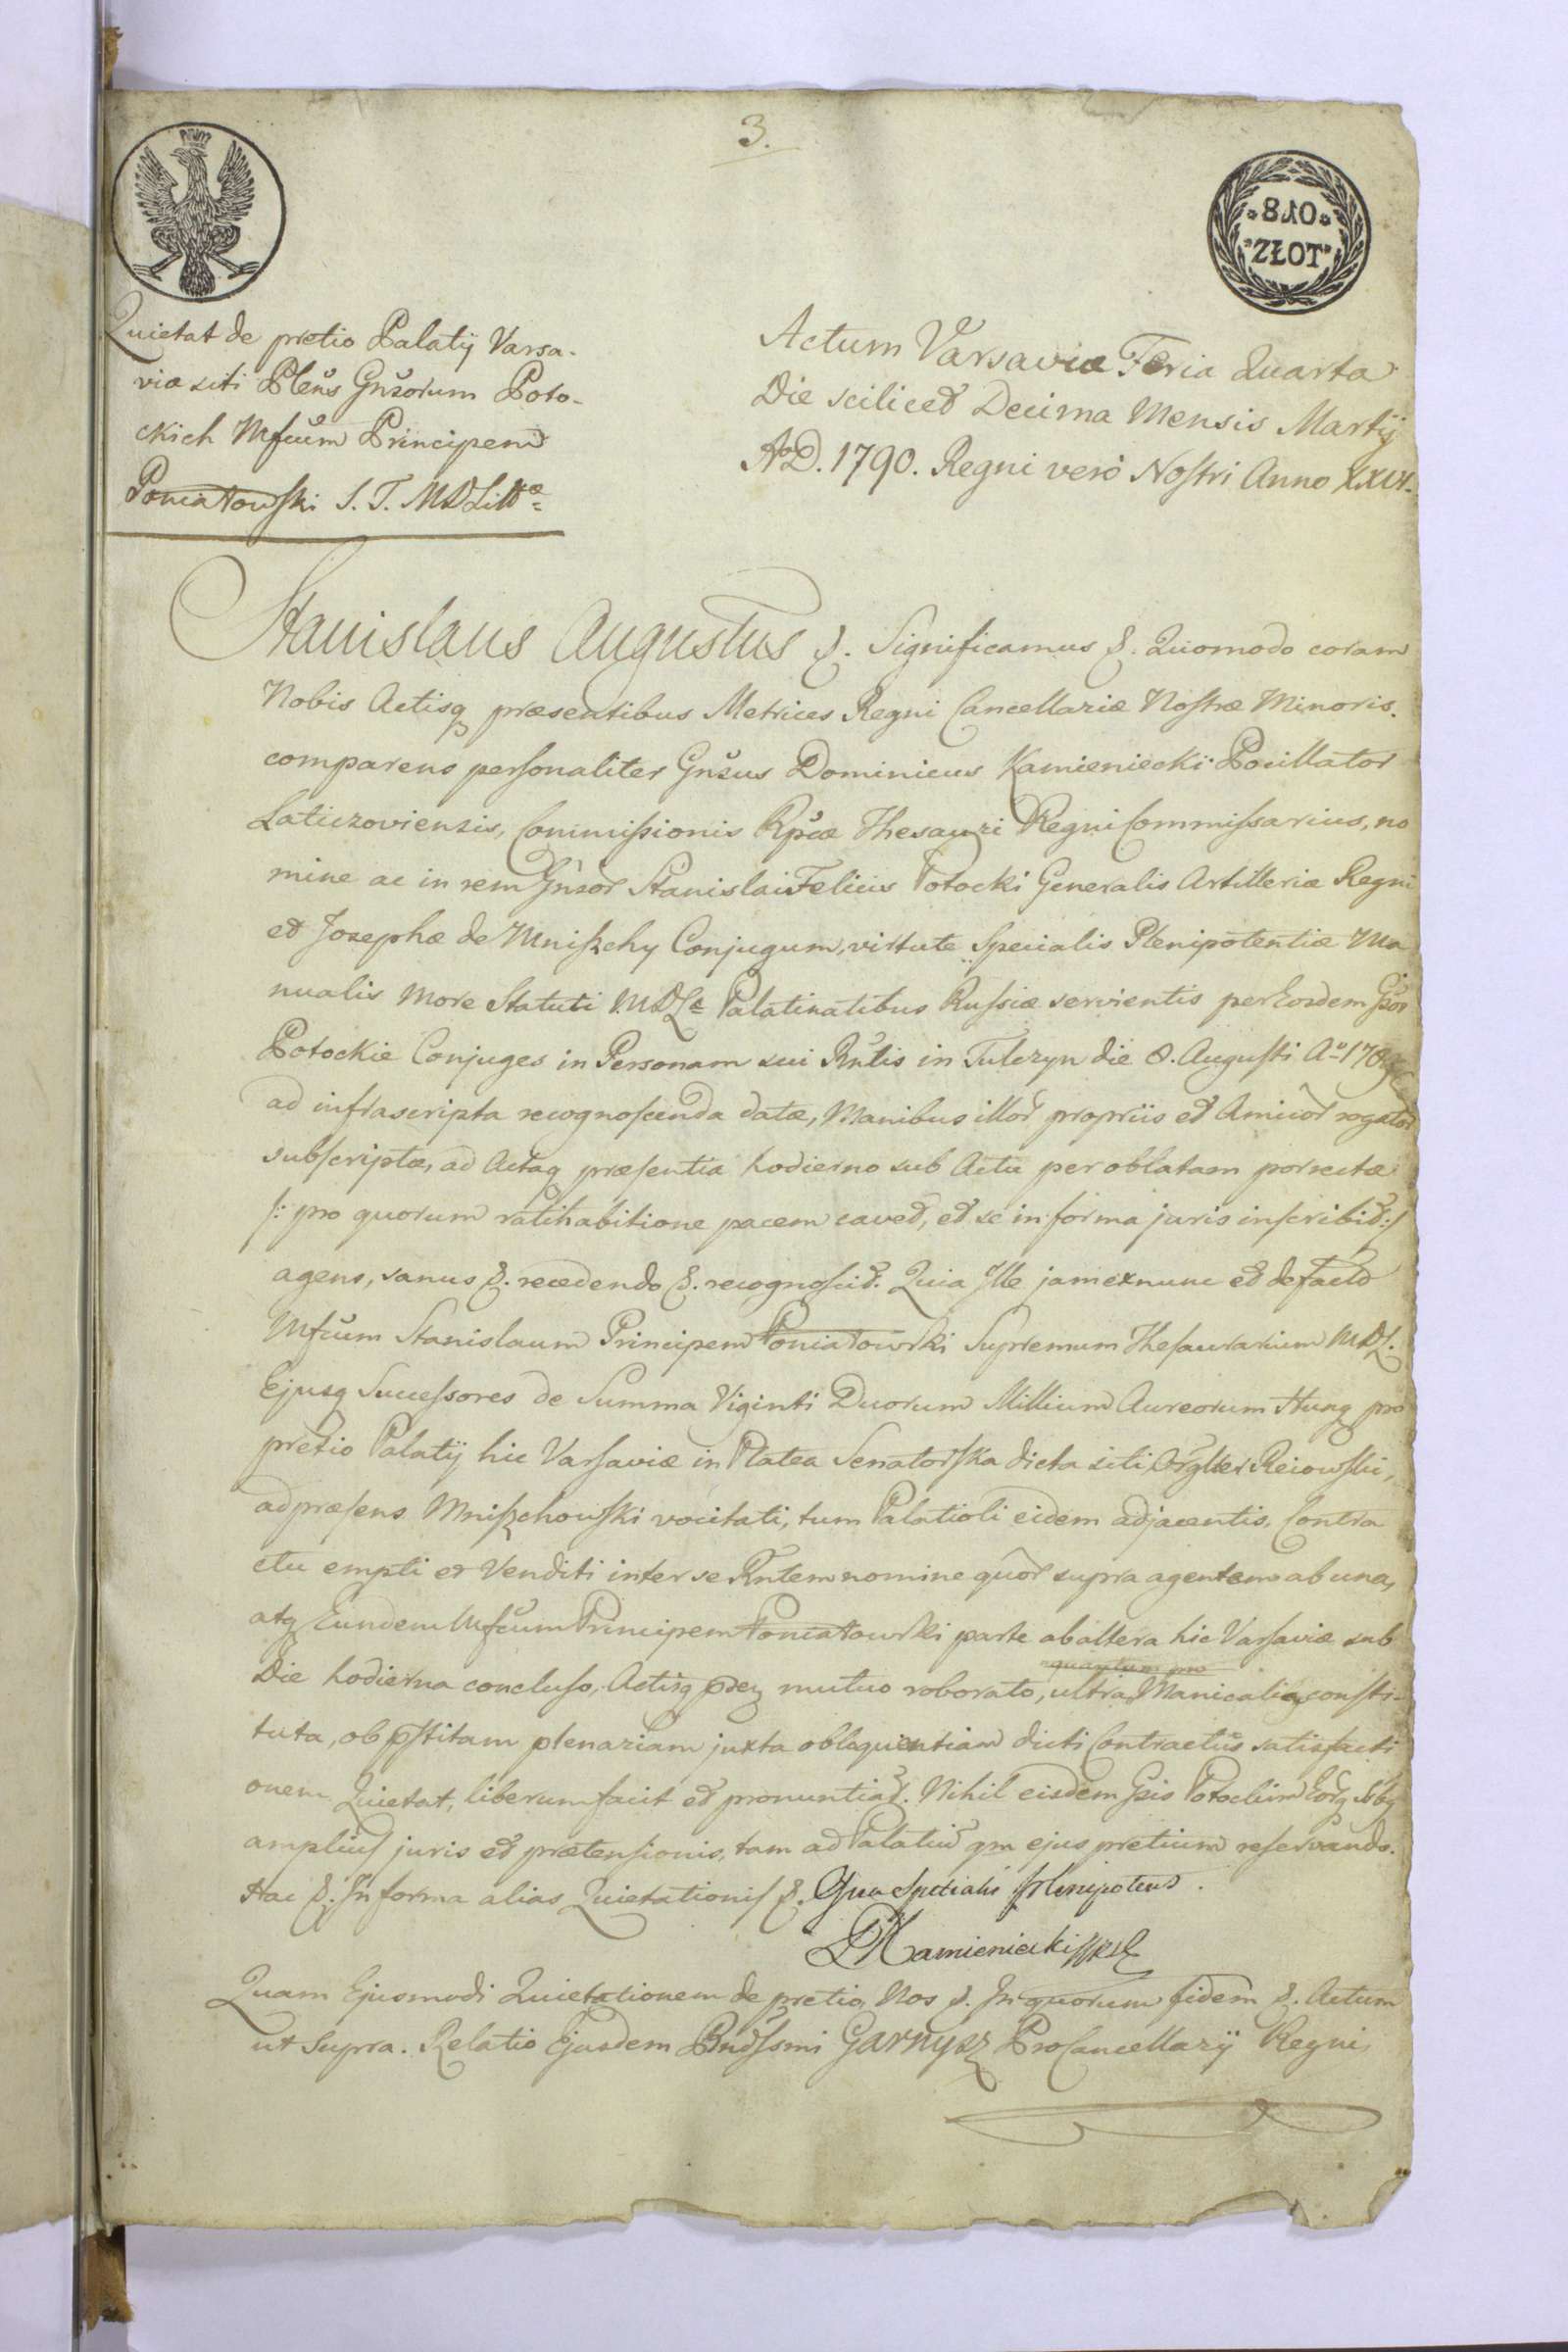 3.
8 10
ZŁOT
Quietat de pretio Palatij Varsa-
viæ siti Plens Gnsorum Poto-
ckich Mfcum Principem
Poniatowski S. T. MDLitt
Actum Varsaviæ Feria Quarta
Die scilicet Decima Mensis Martij
AoD. 1790. Regni verò Nostri Anno XXVI.
Stanislaus Augustus &. Significamus &. Quomodo coram
Nobis Actisq præsentibus Metrices Regni Cancellariæ Nostræ Minoris.
comparens personaliter Gnsus Dominicus Kamieniecki Pocillator
Laticzoviensis, Commissionis Rpcæ Thesauri Regni Commissarius, no
mine ac in rem Gnsor Stanislai Felicis Potocki Generalis Artilleriæ Regni
et Josephæ de Mniszchy Conjugum, virtute Specialis Plenipotentiæ Ma
nualis More Statuti MDL Palatinatibus Russiæ servientis per Eosdem Gsos
Potockie Conjuges in Personam sui Rntis in Tulczyn die 8. Augusti Ao
ad infrascripta recognoscenda datæ, Manibus illor propriis et Amicor rogator
subscriptæ, ad Actaq præsentia hodierno sub Actu per oblatam porrectæ
/: pro quorum ratihabitione pacem cavet, et se in forma juris inscribit :/
agens, sanus &. recedendo &. recognoscit. Quia Ille jam ex nunc et de facto
Mfcum Stanislaum Principem Poniatowski Supremum Thesaurarium MDL.
Ejusq Successores de Summa Viginti Duorum Millium Aureorum Hung pro
pretio Palatij hic Varsaviæ in Platea Senatorska dicta siti, Reiowski,
ad præsens Mniszchowski vocitati, tum Palatioli eidem adjacentis, Contra
ctu empti et Venditi inter se Rntem nomine quor supra agentem ab una,
atq Eundem Mfcum Principem Poniatowski parte ab altera hic Varsaviæ sub
Die hodierna concluso, Actisq mutuo roborato, ultra Manicalia consti-
tuta, ob pstitam plenariam juxta obloquentiam dicti Contractus satisfacti
onem Quietat, liberum facit et pronuntiat. Nihil eisdem Gsis Potockim
amplius juris et prætensionis, tam ad Palatiu qm ejus pretium reservando.
Hac &. In forma alias Quietationis &. Qua Specialis Plenipotens.
DKamieniecki
Quam Ejusmodi Quietationem de pretio, Nos &. In quorum fidem &. Actum
ut supra. Relatio Ejusdem Rndssmi Garnysz ProCancellarij Regni,